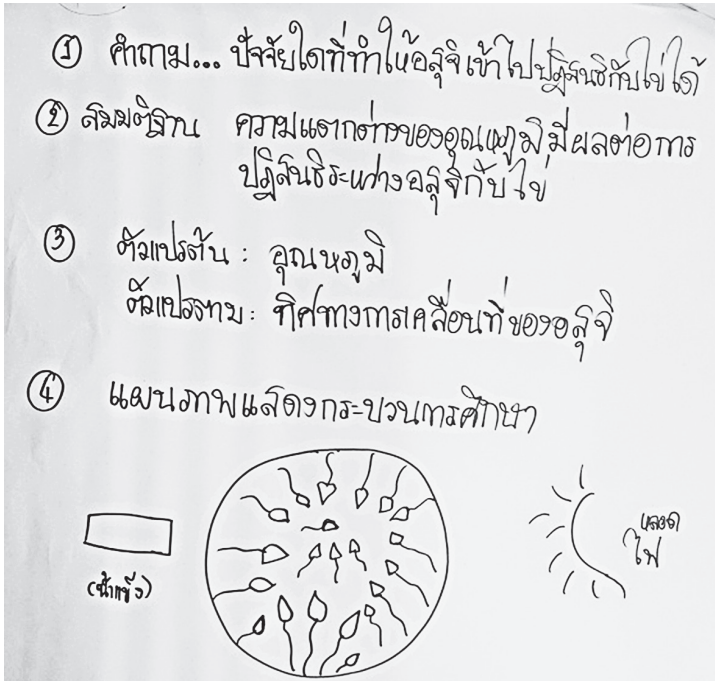 ① คำถาม... ปัจจัยใดที่ทำให้อสุจิเข้าไปปฏิสนธิกับไข่ได้
② สมมติฐาน ความแตกต่างของอุณหภูมิมีผลต่อการ
ปฏิสนธิระหว่างอสุจิกับไข่
③ ตัวแปรต้น : อุณหภูมิ
ตัวแปรตาม : ทิศทางการเคลื่อนที่ของอสุจิ
④ แผนภาพแสดงกระบวนการศึกษา
(น้ำแข็ง)
หลอด
ไฟ